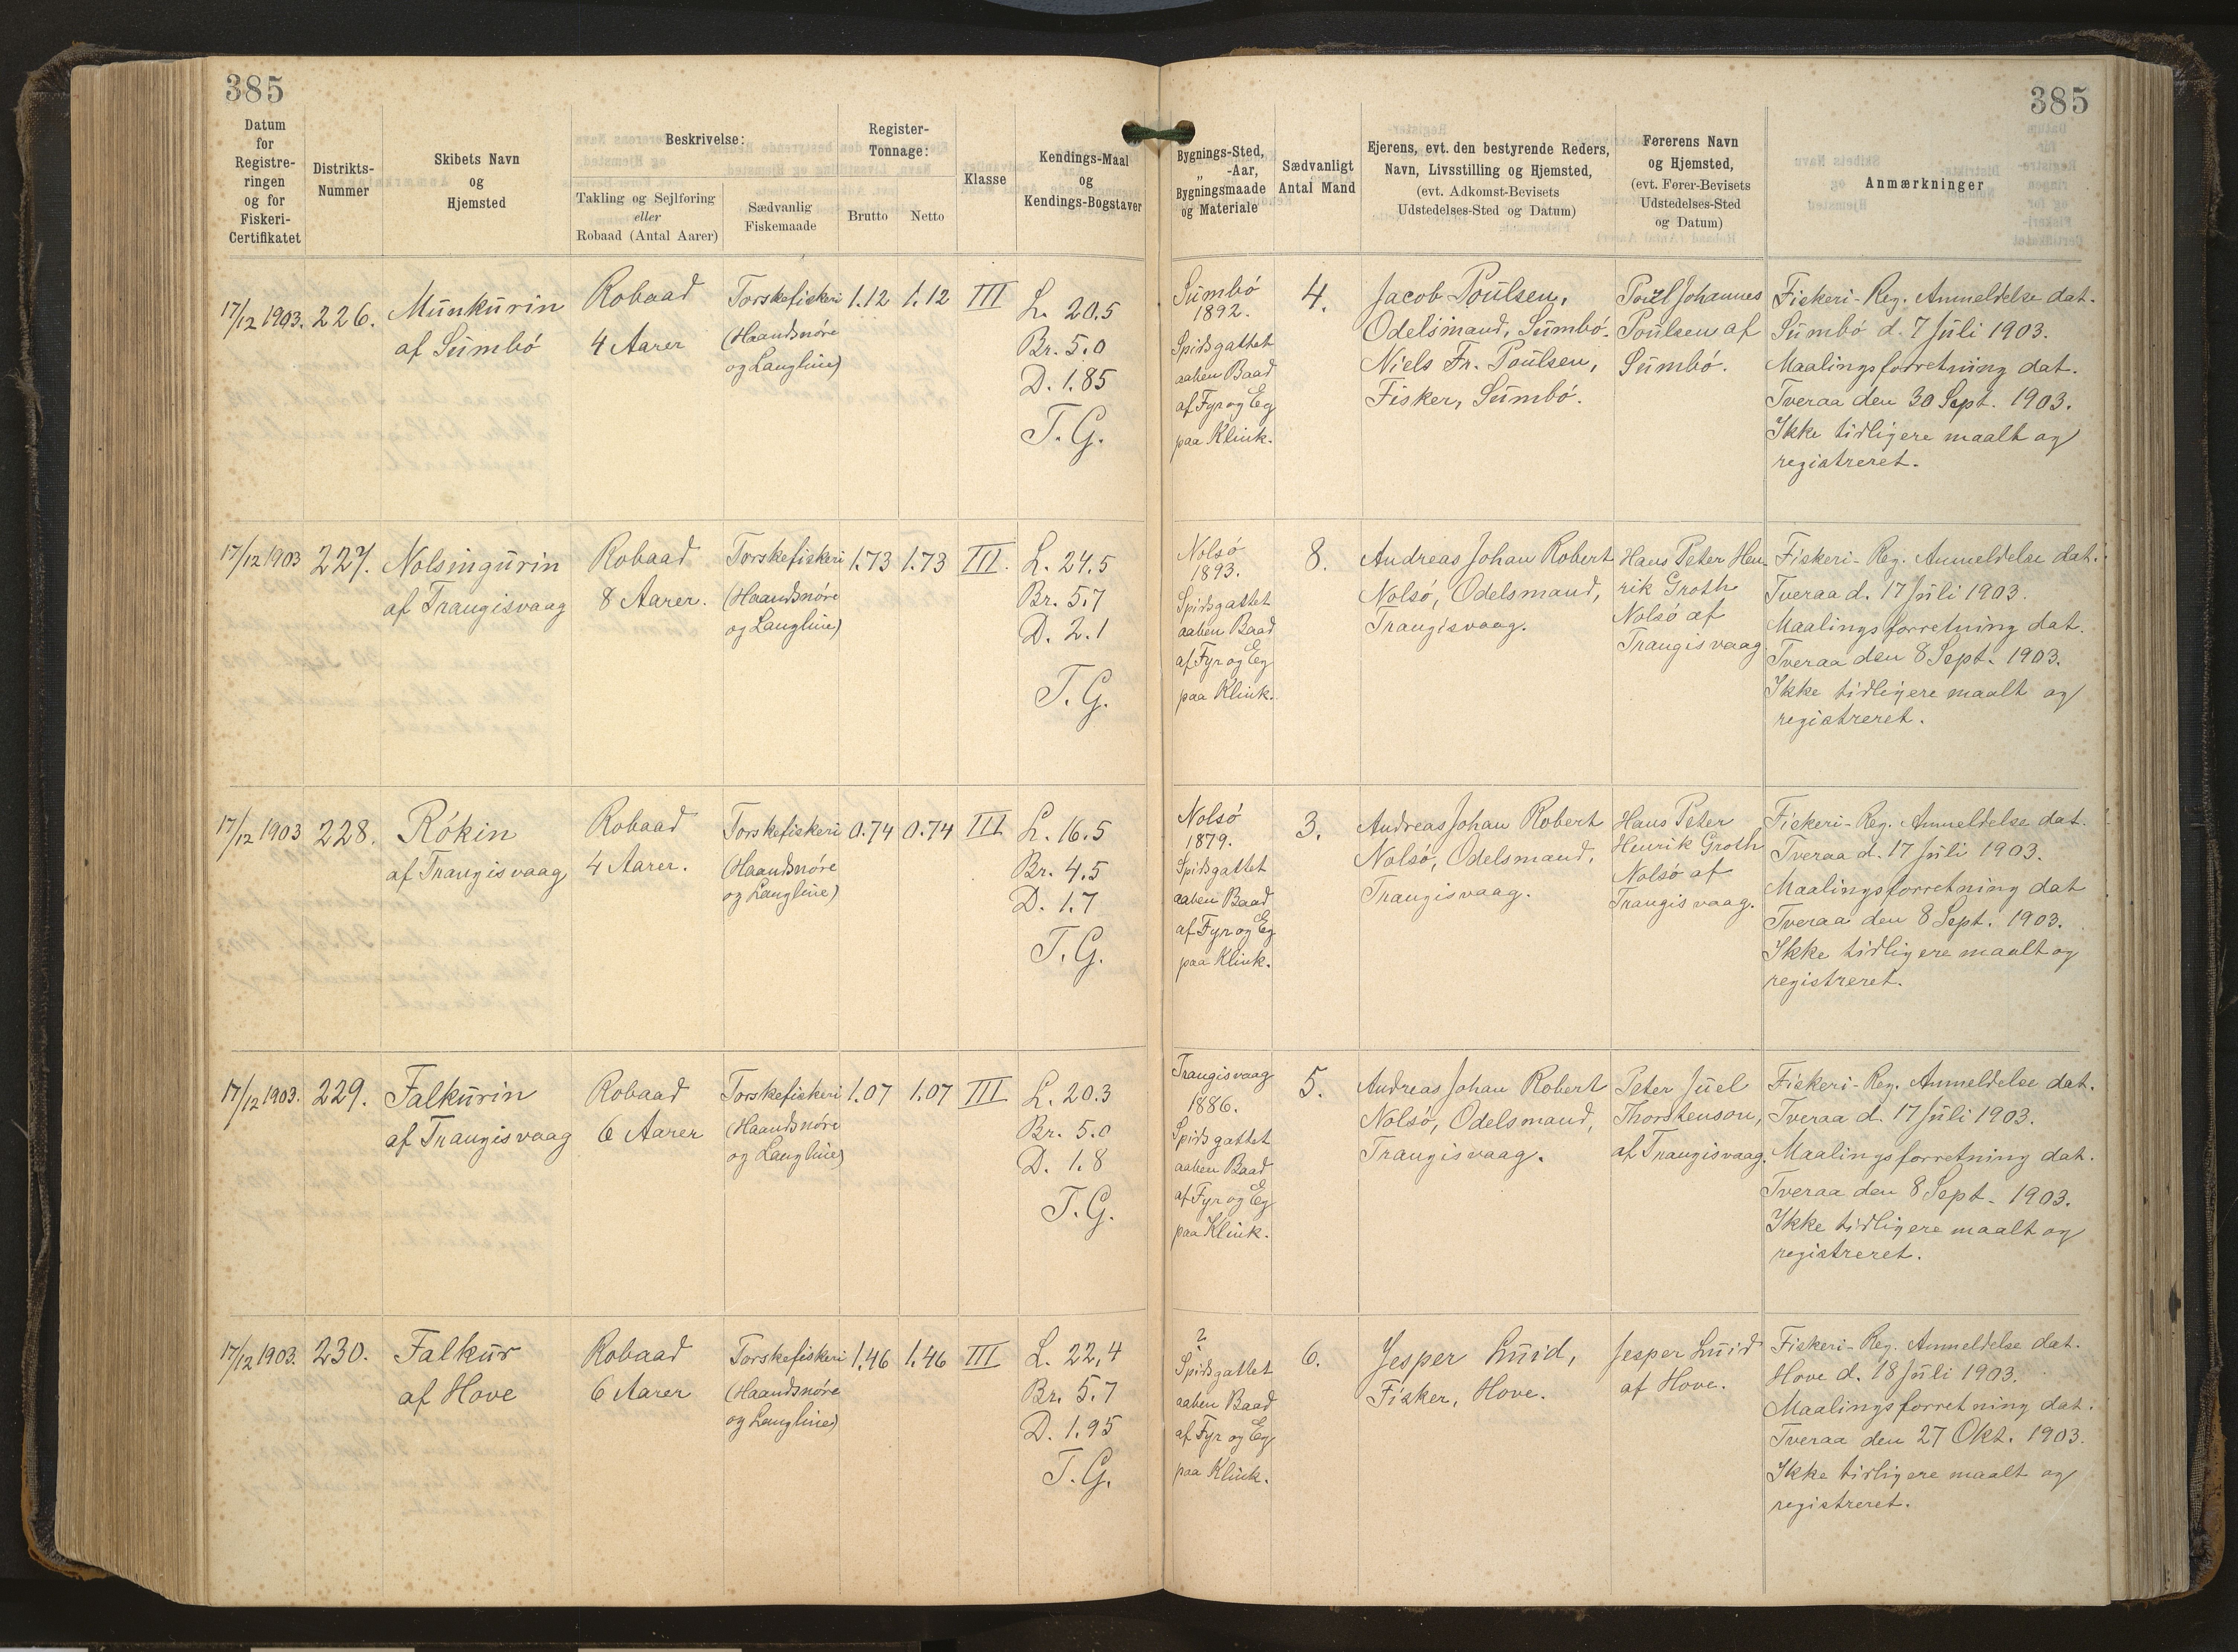 385
385
Datum
for
Registre-
ringen
og for
Fiskeri-
Certifikatet
Distrikts-
Nummer
Skibets Navn
og
Hjemsted
Beskrivelse:
Takling og Sejlføring
eller
Robaad (Antal Aarer)
Sædvanlig
Fiskemaade
Register-
Tonnage:
Brutto
Netto
Klasse
Kendings-Maal
og
Kendings-Bogstaver
Bygnings-Sted,
„ -Aar,
Bygningsmaade
og Materiale
Sædvanligt
Antal Mand
Ejerens, evt. den bestyrende Reders,
Navn, Livsstilling og Hjemsted,
(evt. Adkomst-Bevisets
Udstedelses-Sted og Datum)
Førerens Navn
og Hjemsted,
(evt. Fører-Bevisets
Udstedelses-Sted
og Datum)
Anmærkninger
17/12 1903.
226.
Munkurin
af Sumbó
Robaad
4 Aarer
Torskefiskeri
(Haandsnøre
og Langline)
1.12
1.12
III
L. 20.5
Br. 5.0
D. 1.85
T. G.
Sumbó
1892.
Spidsgattet
aaben Baad
af Fyr og Eg
paa Klink.
4.
Jacob Poulsen,
Odelsmand, Sumbó.
Niels Fr. Poulsen,
Fisker, Sumbó.
Poul Johannes
Poulsen af
Sumbó.
Fiskeri-Reg. Anmeldelse dat.
Sumbó d. 7 Juli 1903.
Maalingsforretning dat.
Tveraa den 30 Sept. 1903.
Ikke tidligere maalt og
registreret.
17/12 1903
227.
Nolsingurin
af Trangisvaag
Robaad
8 Aarer.
Torskefiskeri
(Haandsnøre
og Langline)
1.73
1.73
III.
L. 24.5
Br. 5.7
D. 2.1
T. G.
Nolsó
1893.
Spidsgattet
aaben Baad
af Fyr og Eg
paa Klink.
8.
Andreas Johan Robert
Nolsó, Odelsmand,
Trangisvaag.
Hans Peter Hen-
rik Groth
Nolsó af
Trangisvaag.
Fiskeri-Reg. Anmeldelse dat.
Tveraa d. 17 Juli 1903.
Maalingsforretning dat.
Tveraa den 8 Sept. 1903.
Ikke tidligere maalt og
registreret.
17/12 1903
228.
Rókin
af Trangisvaag
Robaad
4 Aarer.
Torskefiskeri
(Haandsnøre
og Langline)
0.74
0.74
III
L. 16.5
Br. 4.5
D. 1.7
T. G.
Nolsó
1879.
Spidsgattet
aaben Baad
af Fyr og Eg
paa Klink.
3.
Andreas Johan Robert
Nolsó, Odelsmand,
Trangisvaag.
Hans Peter
Henrik Groth
Nolsó af
Trangisvaag.
Fiskeri-Reg. Anmeldelse dat.
Tveraa d. 17 Juli 1903.
Maalingsforretning dat
Tveraa den 8 Sept. 1903.
Ikke tidligere maalt og
registreret.
17/12 1903.
229.
Falkurin
af Trangisvaag
Robaad
6 Aarer
Torskefiskeri
(Haandsnøre
og Langline)
1.07
1.07
III
L. 20.3
Br. 5.0
D. 1.8
T. G.
Trangisvaag
1886.
Spidsgattet
aaben Baad
af Fyr og Eg
paa Klink.
5.
Andreas Johan Robert
Nolsó, Odelsmand,
Trangisvaag.
Peter Juel
Thorstenson,
af Trangisvaag.
Fiskeri-Reg. Anmeldelse dat.
Tveraa d. 17 Juli 1903.
Maalingsforretning dat.
Tveraa den 8 Sept. 1903.
Ikke tidligere maalt og
registreret.
17/12 1903.
230.
Falkur
af Hove
Robaad
6 Aarer
Torskefiskeri
(Haandsnøre
og Langline)
1.46
1.46
III
L. 22,4
Br. 5.7
D. 1.95
T. G.
?
Spidsgattet
aaben Baad
af Fyr og Eg
paa Klink.
6.
Jesper Luid,
Fisker, Hove.
Jesper Luid
af Hove.
Fiskeri-Reg. Anmeldelse dat.
Hove d. 18 Juli 1903.
Maalingsforretning dat.
Tveraa den 27 Okt. 1903.
Ikke tidligere maalt og
registreret.